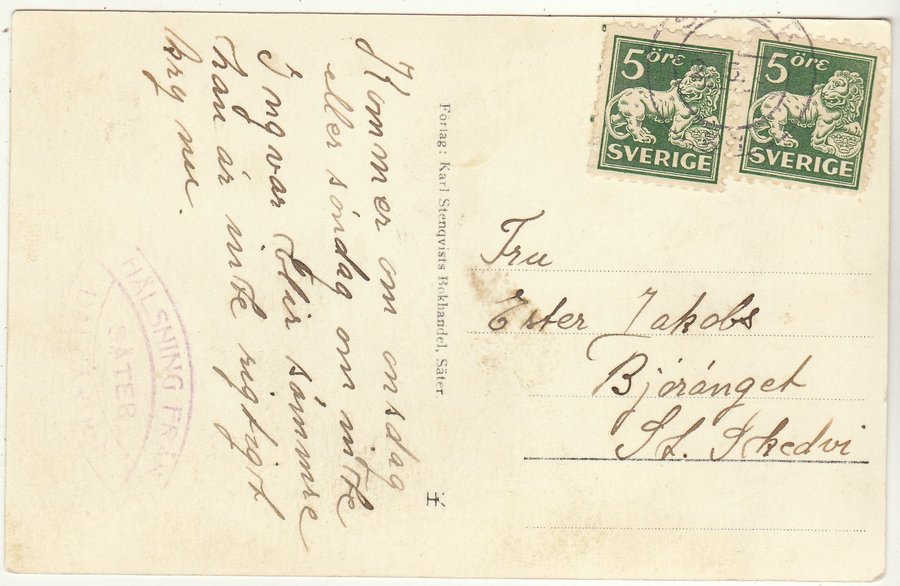 Kommer om onsdag
eller söndag om inte
Ingvar blir sämmre
han är inte rigtigt
bry nu.
Förlag: Karl Stenqvists Bokhandel, Säter.
5 öre
SVERIGE
5 öre
SVERIGE
Fru
Ester Jakobs
Björänget
St. Skedvi
HÄLSNING FRÅN
SÄTER